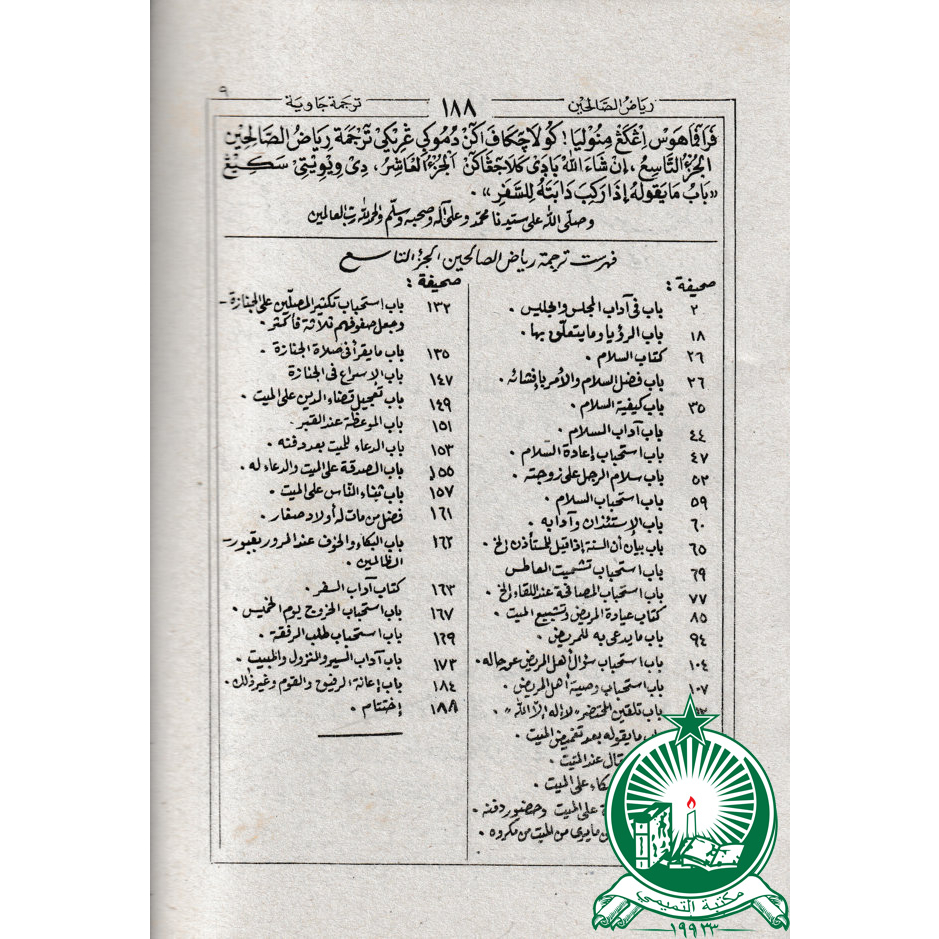 ٩
رياض الصالحين
١٨٨
ترجمة جاوية
فرافاهوس اڠكڠ منوليا! كولا چكاف اكن دموكي ڠريكي ترجمة رياض الصالحين
الجزء التاسع، إن شاء الله بادي كلاجڠاكن الجزء العاشر، دي ويويتي سكيڠ
«باب ما يقوله إذا ركب دابته للسفر».
وصلى الله على سيدنا محمد وعلى آله وصحبه وسلم والحمد لله رب العالمين
فهرت ترجمة رياض الصالحين الجزء التاسع
صحيفة:
٢ باب فى آداب المجلس والجليس.
١٨ باب الرؤيا وما يتعلق بها.
٢٦ كتاب السلام.
٢٦ باب فضل السلام والأمر بإفشائه.
٣٥ باب كيفية السلام.
٤٤ باب آداب السلام.
٤٧ باب استحباب إعادة السلام.
٥٣ باب سلام الرجل على زوجته.
٥٩ باب استحباب السلام.
٦٠ باب الإستئذان وآدابه.
٦٥ باب بيان أن السنة إذا قيل للمستأذن إلخ.
٦٩ باب استحباب تشميت العاطس
٧٧ باب استحباب المصافحة عند اللقاء إلخ.
٨٥ كتاب عيادة المريض وتشييع الميت.
٩٤ باب ما يدعى به للمريض.
١٠٤ باب استحباب سؤال أهل المريض عن حاله.
١٠٧ باب استحباب وصية أهل المريض.
باب تلقين المحتضر "لا إله إلا الله".
ما يقوله بعد تغميض الميت.
يقال عند الميت.
على الميت.
على الميت وحضور دفنه.
ما يرى من الميت من مكروه.
صحيفة:
١٣٢ باب استحباب تكثير المصلين على الجنازة -
وجعل صفوفهم ثلاثة فأكثر.
١٣٥ باب ما يقرأ فى صلاة الجنازة.
١٤٧ باب الإسراع فى الجنازة
١٤٩ باب تعجيل قضاء الدين على الميت.
١٥١ باب الموعظة عند القبر.
١٥٣ باب الدعاء للميت بعد دفنه.
١٥٥ باب الصدقة على الميت والدعاء له.
١٥٧ باب ثناء الناس على الميت.
١٦١ فضل من مات له أولاد صغار.
١٦٢ باب البكاء والخوف عند المرور بقبور -
الظالمين.
١٦٣ كتاب آداب السفر.
١٦٧ باب استحباب الخروج يوم الخميس.
١٦٩ باب استحباب طلب الرفقة.
١٧٣ باب آداب السير والنزول والمبيت.
١٨٤ باب إعانة الرفيق والقوم وغير ذلك.
١٨٨ إختتام.
مكتبة التميمي
١٩٩٣٣